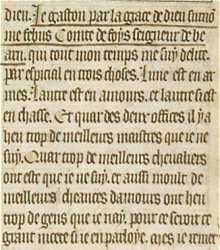 dieu. Je gaston par la grace de dieu surnõ
me febus Comte de foys seigneur de be
arn. qui tout mon temps me suy delite
par espicial en trois choses. lune est en ar
mes. lautre est en amours. et lautre si est
en chasse. Et quar des deux offices il y a
heu trop de meilleurs maistres que je ne
suy. Quar trop de meilleurs chevaliers
ont este que je ne suy. et aussi moult de
meilleurs cheances damours ont heu
trop de gens que je nay. pour ce seroit ce
grant nicete si je en parloye. mes je remet